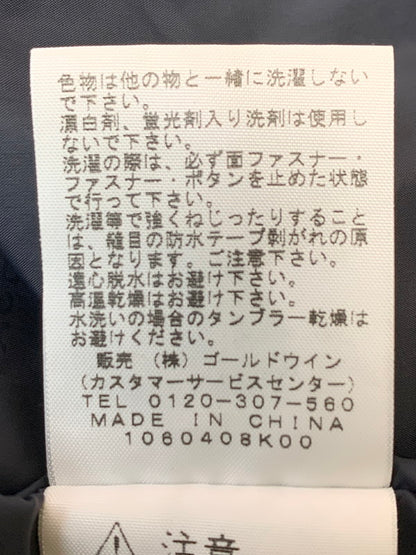 色物は他の物と一緒に洗濯しない
で下さい。
漂白剤、蛍光剤入り洗剤は使用し
ないで下さい。
洗濯の際は、必ず面ファスナー・
ファスナー・ボタンを止めた状態
で行って下さい。
洗濯等で強くねじったりすること
は、縫目の防水テープ剥がれの原
因となります。ご注意下さい。
遠心脱水はお避け下さい。
高温乾燥はお避け下さい。
水洗いの場合のタンブラー乾燥は
お避けください。
販売 (株) ゴールドウイン
(カスタマーサービスセンター)
TEL 0120-307-560
MADE IN CHINA
1060408K00
注意